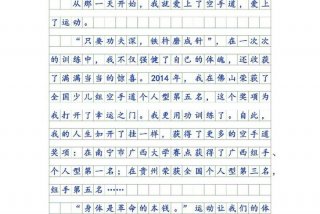 从那一天开始，我就爱上了空手道，爱上
了运动。
“只要功夫深，铁杵磨成针”，在一次次
的训练中，我不仅强健了自己的体魄，还收获
了满满当当的惊喜。2014年，我在佛山荣获了
全国少儿组空手道个人型第五名，这个奖项为
我打开了幸运之门。我更用功训练了。自此，
我的人生如开了挂一样，获得了更多的空手道
奖项：在南宁市广西大学赛点获得了广西组手、
个人型第一名；在贵州荣获全国个人型第三名，
组手第五名……
“身体是革命的本钱。”运动让我们的体